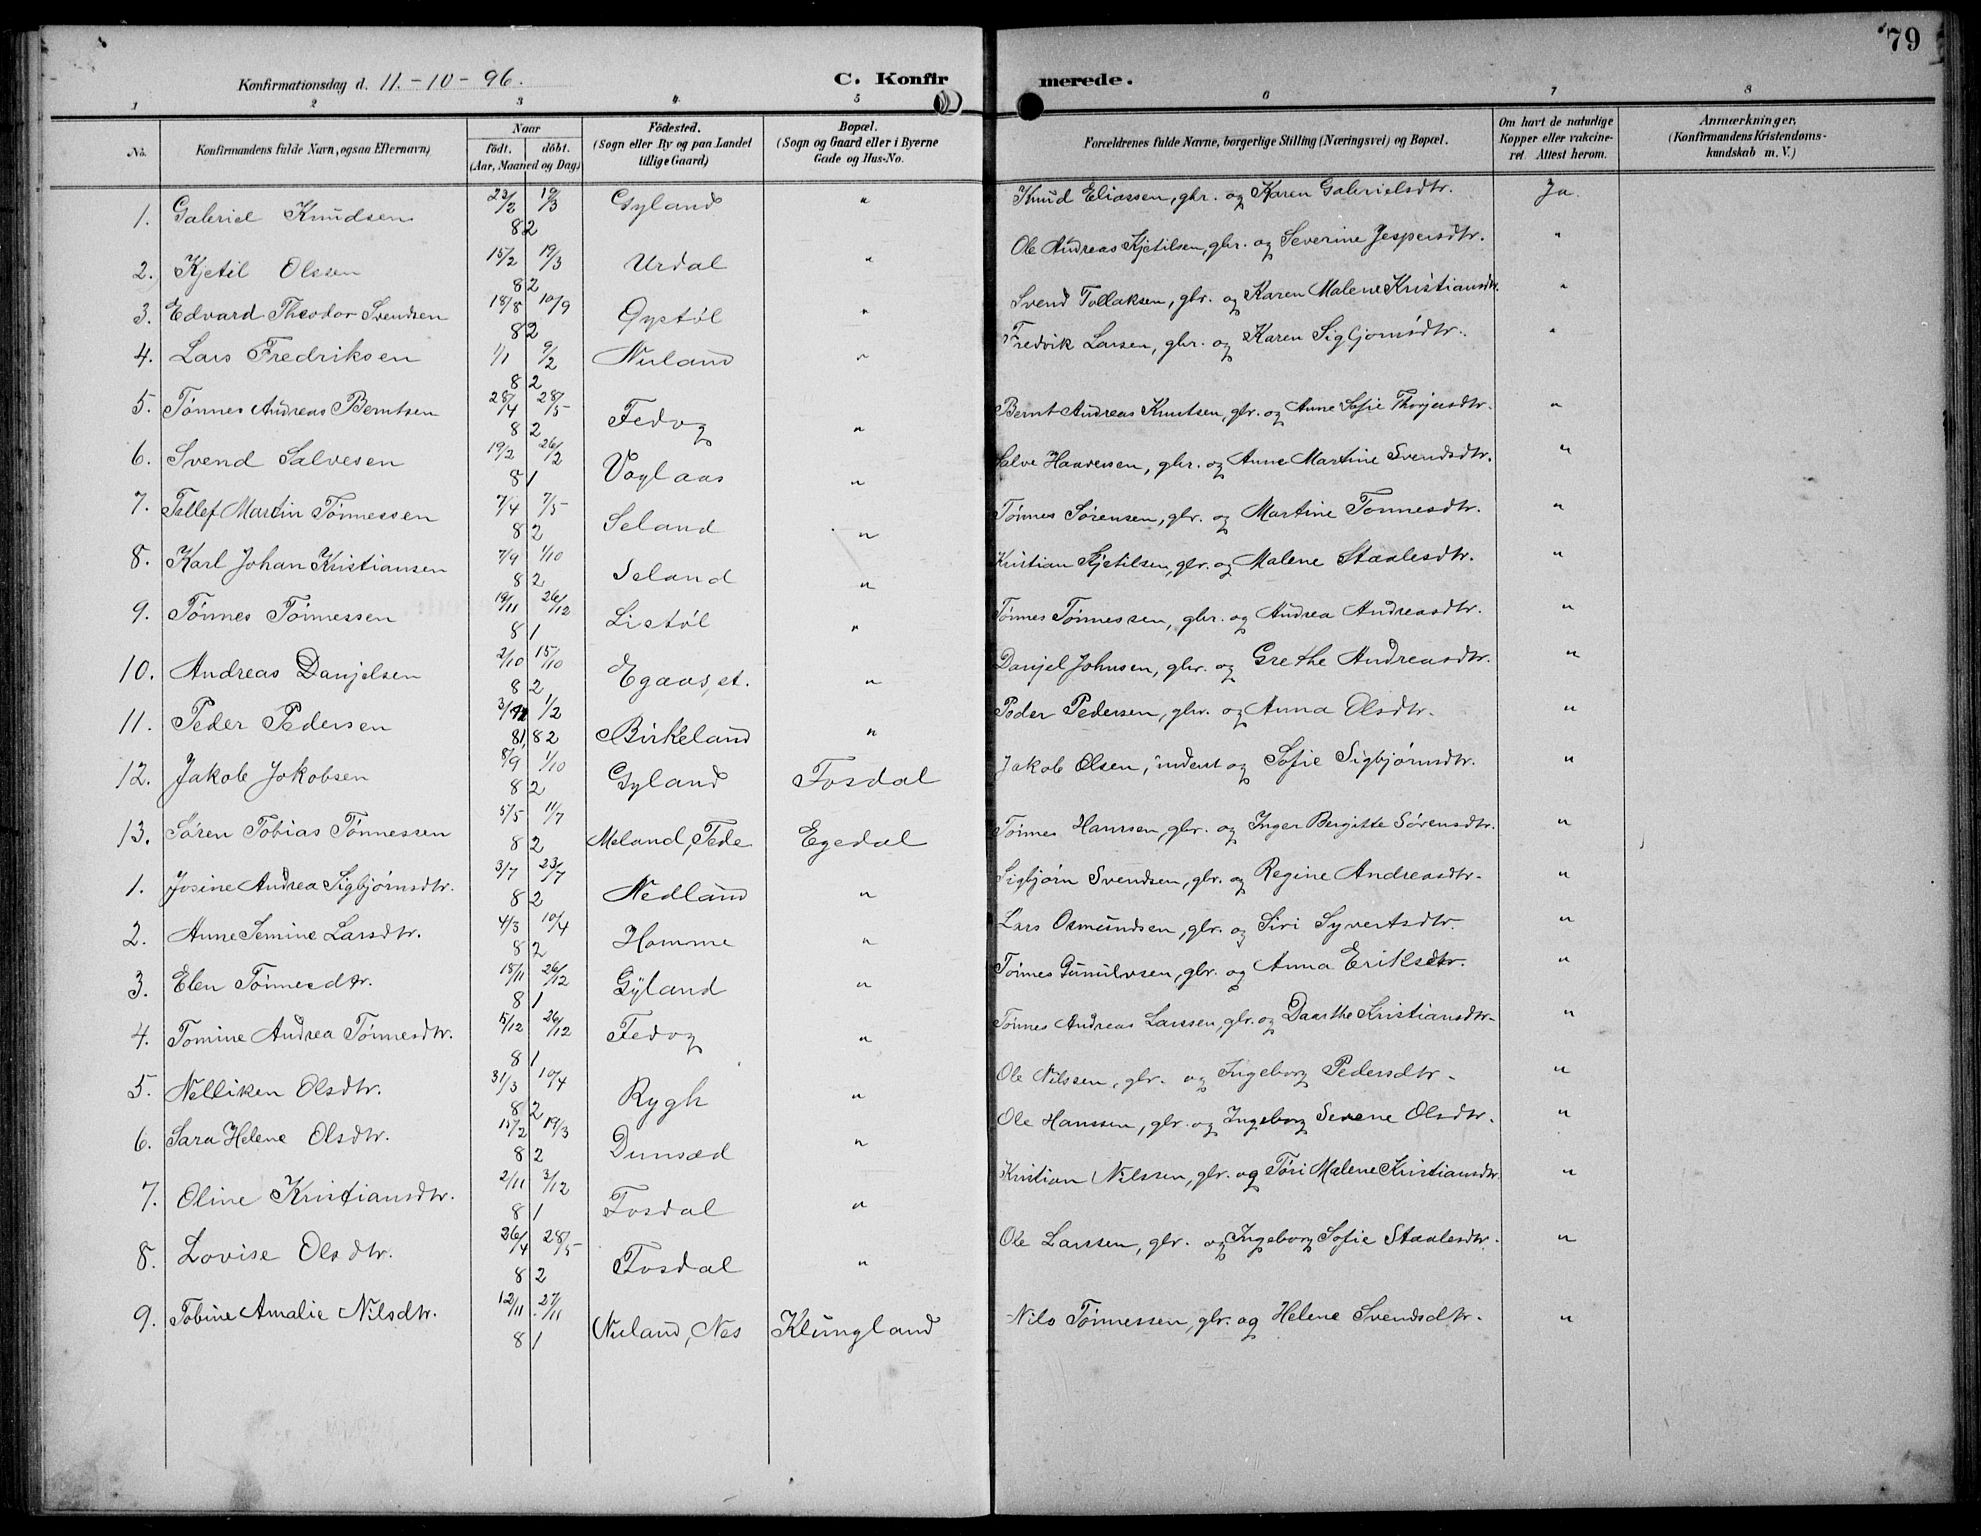 79
Konfirmationsdag d. 11.-10-96. C. Konfirmerede.
1 2 3 4. 5 6 7 8
No. Konfirmandens fulde Navn, ogsaa Efternavn) Naar født. døbt. (Aar, Maaned og Dag) Fødested. (Sogn eller By og paa Landet tillige Gaard) Bopæl. (Sogn og Gaard eller i Byerne Gade og Hus-No. Forældrenes fulde Navne, borgerlige Stilling (Næringsvei) og Bopæl. Om havt de naturlige Kopper eller vakcineret. Attest herom. Anmærkninger, (Konfirmandens Kristendomskundskab m. V.)
1. Gabriel Knudsen 23/2 19/3 82 Gyland " Knud Eliassen, gbr. og Karen Gabrielsdtr. Ja.
2. Kjetil Olsen 15/2 19/3 82 Urdal " Ole Andreas Kjetilsen, gbr. og Severine Jespersdtr. "
3. Edvard Theodor Svendsen 18/8 10/9 82 Øystøl " Svend Tollaksen, gbr. og Karen Malene Kristiansdtr. "
4. Lars Fredriksen 1/1 9/2 82 Nuland " Fredrik Larsen, gbr. og Karen Sigbjørnsdtr. "
5. Tønnes Andreas Berntsen 28/4 28/5 82 Fedog " Bernt Andreas Knutsen, gbr. og Anne Sofie Thorjersdtr. "
6. Svend Salvesen 19/2 26/2 81 Voglaas " Salve Haavessen, gbr. og Anne Martine Svendsdtr. "
7. Tellef Martin Tønnessen 7/4 7/5 82 Seland " Tønnes Sørensen, gbr. og Martine Tønnesdtr. "
8. Karl Johan Kristiansen 7/9 1/10 82 Seland " Kristian Kjetilsen, gbr. og Malene Staalesdtr. "
9. Tønnes Tønnessen 19/11 26/12 81 Listøl " Tønnes Tønnessen, gbr. og Andrea Andreasdtr. "
10. Andreas Danjelsen 2/10 15/10 82 Egaas, et. " Danjel Johnsen, gbr. og Grethe Andreasdtr. "
11. Peder Pedersen 3/12 1/2 81, 82 Birkeland " Peder Pedersen, gbr. og Anna Olsdtr. "
12. Jakob Jokobsen 8/9 1/10 82 Gyland Fosdal Jakob Olsen, inderst og Sofie Sigbjørnsdtr. "
13. Søren Tobias Tønnessen 5/5 11/7 82 Meland, Fede Egedal Tønnes Hanssen, gbr. og Inger Bergitte Sørensdtr. "
1. Josine Andrea Sigbjørnsdtr. 3/7 23/7 82 Nedland " Sigbjørn Svendsen, gbr. og Regine Andreasdtr. "
2. Anne Semine Larsdtr. 4/3 10/4 82 Homme " Lars Osmundsen, gbr. og Siri Syvertsdtr. "
3. Elen Tønnesdtr. 18/11 26/12 81 Gyland " Tønnes Gunulvsen, gbr. og Anna Eriksdtr. "
4. Tomine Andrea Tønnesdtr. 15/12 26/12 81 Fedog " Tønnes Andreas Larssen, gbr. og Daarthe Kristiansdtr. "
5. Nelliken Olsdtr. 31/3 10/4 82 Rygh " Ole Nilssen, gbr. og Ingeborg Pedersdtr. "
6. Sara Helene Olsdtr. 15/2 19/3 82 Dunsæd " Ole Hanssen, gbr. og Ingeborg Serene Olsdtr. "
7. Oline Kristiansdtr. 2/11 3/12 81 Fosdal " Kristian Nilssen, gbr. og Tøri Malene Kristiansdtr. "
8. Lovise Olsdtr. 26/4 28/5 82 Fosdal " Ole Larssen, gbr. og Ingeborg Sofie Staalesdtr. "
9. Tobine Amalie Nilsdtr. 12/11 27/11 81 Nuland, Nes Klungland Nils Tønnessen, gbr. og Helene Svendsdtr. "